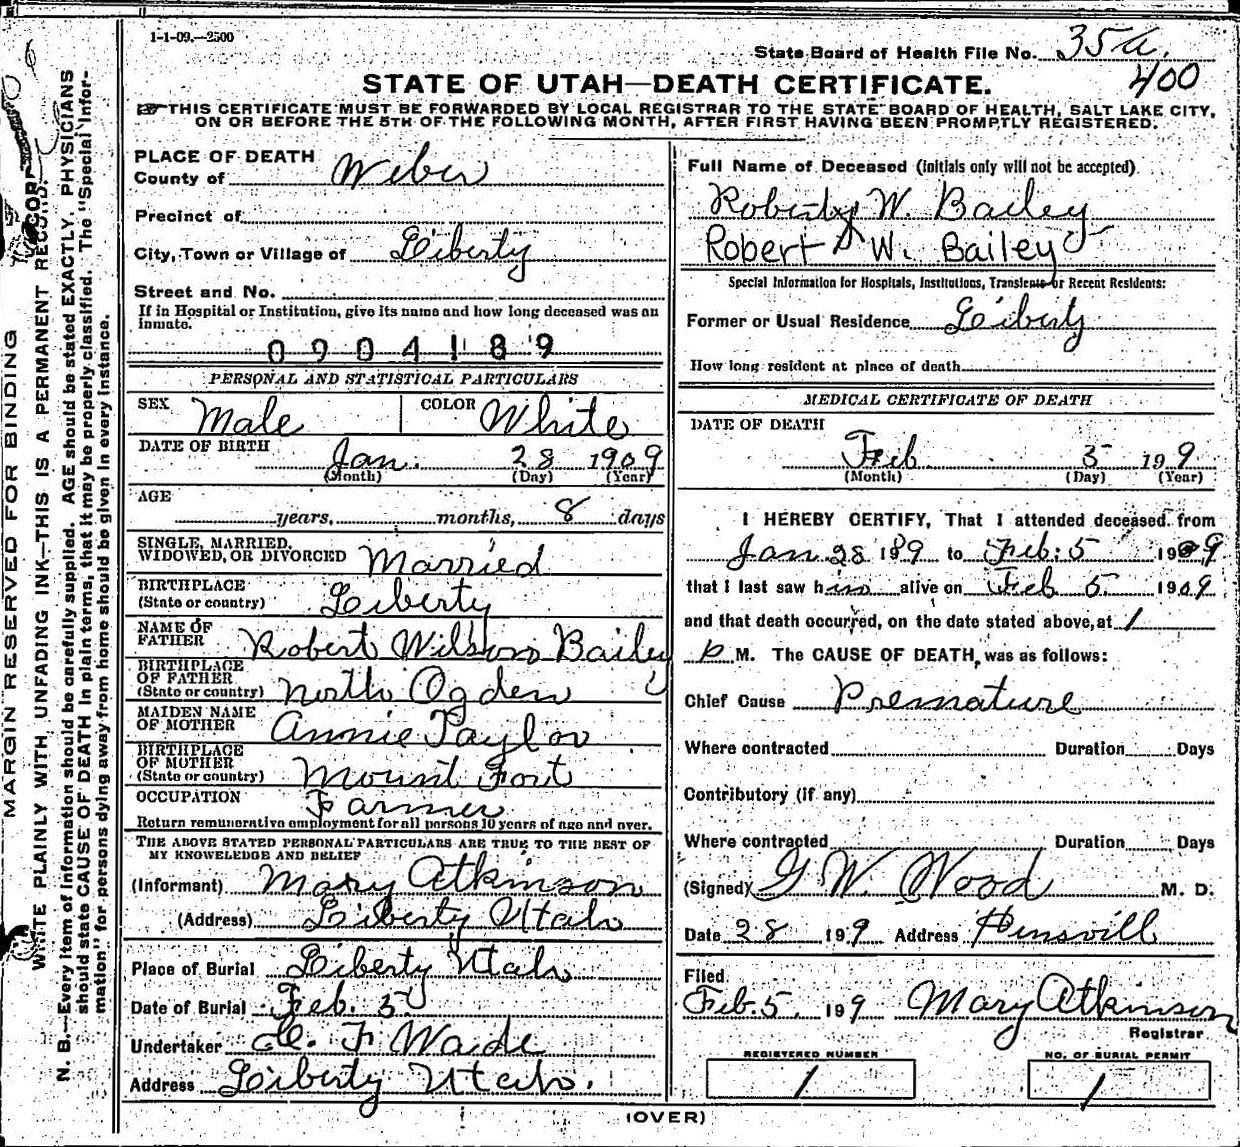 1-1-09.—2500
State Board of Health File No. 35a.
400
STATE OF UTAH—DEATH CERTIFICATE.
☞THIS CERTIFICATE MUST BE FORWARDED BY LOCAL REGISTRAR TO THE STATE BOARD OF HEALTH, SALT LAKE CITY,
ON OR BEFORE THE 5TH OF THE FOLLOWING MONTH, AFTER FIRST HAVING BEEN PROMPTLY REGISTERED.
MARGIN RESERVED FOR BINDING
WRITE PLAINLY WITH UNFADING INK—THIS IS A PERMANENT RECORD.
N. B.—Every item of information should be carefully supplied. AGE should be stated EXACTLY. PHYSICIANS
should state CAUSE OF DEATH in plain terms, that it may be properly classified. The "Special Infor-
mation" for persons dying away from home should be given in every instance.
PLACE OF DEATH
County of Weber
Precinct of
City, Town or Village of Liberty
Street and No.
If in Hospital or Institution, give its name and how long deceased was an
inmate.
0904189
PERSONAL AND STATISTICAL PARTICULARS
SEX Male COLOR White
DATE OF BIRTH
Jan. 28 1909
(Month) (Day) (Year)
AGE
years, months, 8 days
SINGLE, MARRIED,
WIDOWED, OR DIVORCED Married
BIRTHPLACE
(State or country) Liberty
NAME OF
FATHER Robert Wilson Bailey
BIRTHPLACE
OF FATHER
(State or country) North Ogden
MAIDEN NAME
OF MOTHER Annie Taylor
BIRTHPLACE
OF MOTHER
(State or country) Mount Fort
OCCUPATION Farmer
Return remunerative employment for all persons 10 years of age and over.
THE ABOVE STATED PERSONAL PARTICULARS ARE TRUE TO THE BEST OF
MY KNOWELEDGE AND BELIEF
(Informant) Mary Atkinson
(Address) Liberty Utah
Place of Burial Liberty Utah
Date of Burial Feb. 5
Undertaker F Wade
Address Liberty Utah.
Full Name of Deceased (initials only will not be accepted)
W. Bailey
Robert W. Bailey
Special Information for Hospitals, Institutions, Transients or Recent Residents:
Former or Usual Residence Liberty
How long resident at place of death
MEDICAL CERTIFICATE OF DEATH
DATE OF DEATH
Feb 5 199
(Month) (Day) (Year)
I HEREBY CERTIFY, That I attended deceased from
Jan 28 1909 to Feb. 5 1909
that I last saw him alive on Feb 5 1909
and that death occurred, on the date stated above, at 1
P M. The CAUSE OF DEATH, was as follows:
Chief Cause Premature
Where contracted Duration Days
Contributory (if any)
Where contracted Duration Days
(Signed) G W. Wood M. D.
Date 28 199 Address
Filed
Feb. 5 199 Mary Atkinson
Registrar
REGISTERED NUMBER
1
NO. OF BURIAL PERMIT
1
(OVER)